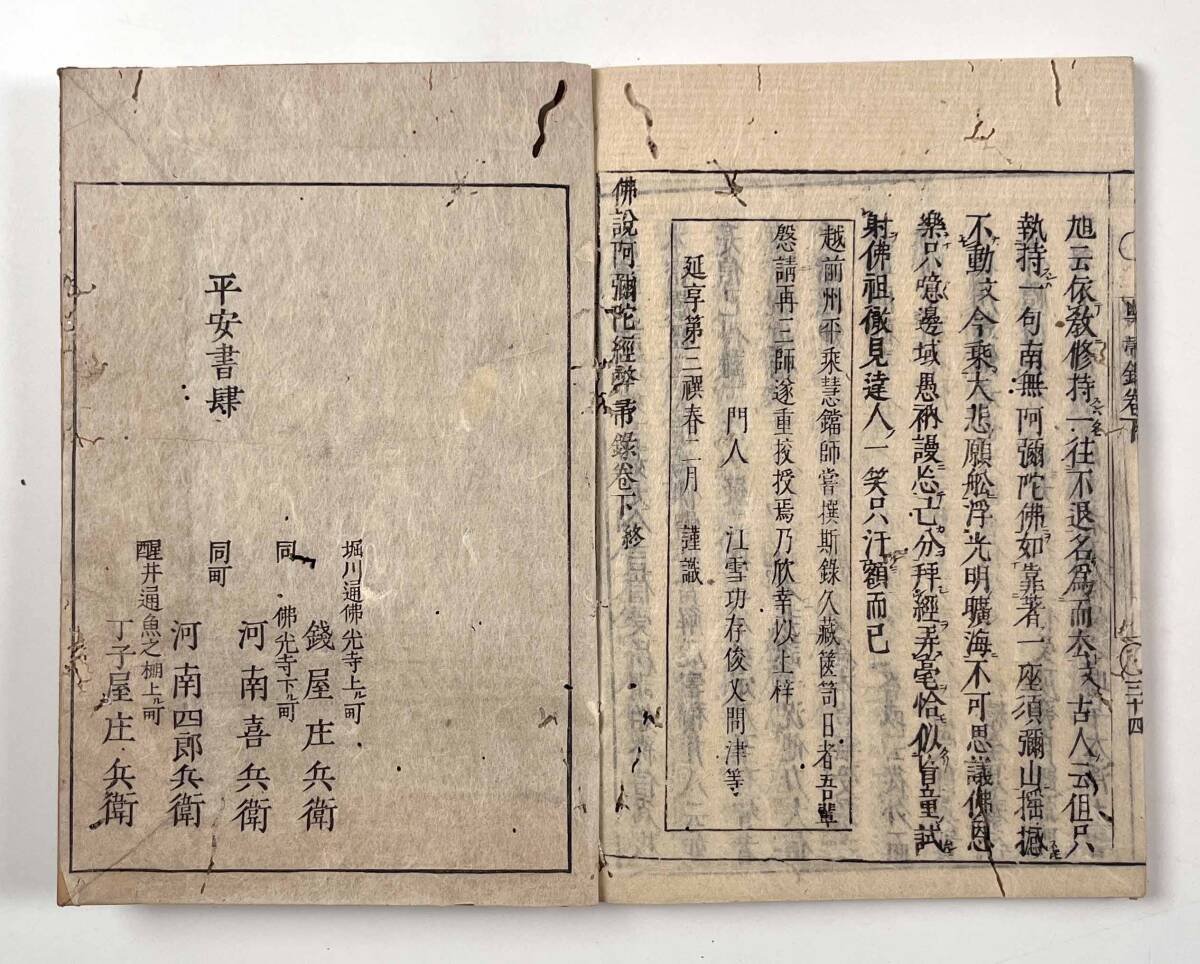 旭云依教修持一往不退名爲而去文古人云但只
執持一句南無阿彌陀佛如靠著一座須彌山搖撼
不動文今乘大悲願舩浮光明曠海不可思議佛恩
樂只噫邊域愚衲謾忘己分拜經弄毫恰似盲童試
射佛祖徹見達人一笑只汗額而已
越前州平乘慧鐺師嘗撰斯錄久藏篋笥日者吾輩
慇請再三師遂重挍授焉乃欣幸以上梓
門人 江雪功存俊乂問津等
延享第三禩春二月 謹識
佛說阿彌陀經弊帚錄卷下終
弊帚錄卷下
三十四
平安書肆
堀川通佛光寺上ル町
錢屋庄兵衛
同 佛光寺下ル町
河南喜兵衛
同町
河南四郎兵衛
醒井通魚之棚上ル町
丁子屋庄兵衛